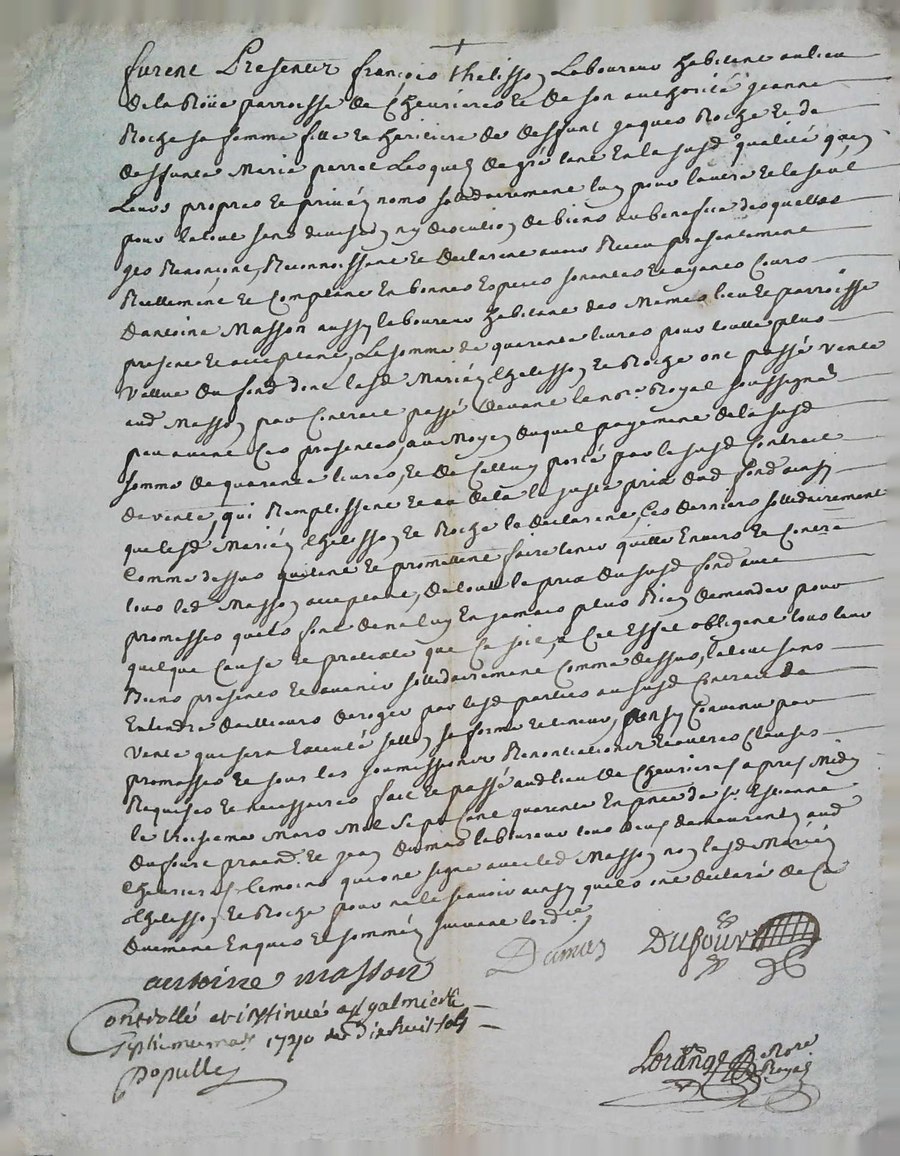 furent Presents françois thelisson Laboureur habitant au lieu
de la Roüe parroisse de Cheurieres et de son authorité jeanne
Roche sa femme fille et heritiere de deffunt jaques Roche et de
deffunte Marie parret Lesquels de gré tant en la susd. qualité qu'en
Leurs propres et privés noms sollidairement l'un pour l'autre et le seul
pour le tout sans division ny discution de biens au benefice desquelles
ges Renonçent, Reconnoissent et declarent avoir Receu presentement
Reellement et Comptant En bonnes Especes sonantes et ayants Cours
d'antoine Masson aussy laboureur habitant des Mêmes lieu et parroisse
present et acceptant, La somme de quarente livres pour toutte plus
vallue du fond dont lesd. Mariés thelisson et Roche ont passé vente
aud. Masson par Contract passé devant le nore. Royal soussigné
peu avant Ces presentes, au Moyen duquel payement de la susd.
somme de quarente livres, et de Celluy porté par le susd. Contract
de vente, qui Remplissent et au dela le juste prix dud. fond ainsy
que lesd. Mariés thelisson et Roche le declarent, Ces derniers sollidairement
Comme dessus quittent et promettent faire tenir quitte Envers et Contre
tous led. Masson acceptant, de tout le prix du susd. fond avec
promesses quels font de ne luy En jamais plus Rien demander pour
quelque Cause et pretexte que Ce soit, a Cet Effet obligent tous leur
Biens presents et avenir sollidairement Comme dessus, le tout sans
Entendre d'ailleurs deroger par lesd. parties au susd. Contract de
vente que sera Executé sellon sa forme et teneur, ainsy Convenu par
promesses et sous les soumissions Renontiations et autres Clauses
Requises et necessaires fait et passé aud. lieu de Cheurieres apres Midy
le troisieme Mars Mil sept Cent quarente En pnce. de Sr. Estienne
Dufour praticn. et jean dumas laboureur tous deux demeurents aud.
Cheurieres temoins qui ont signé avec led. Masson non lesd. Mariés
thelisson et Roche pour ne le scavoir ainsy quils ont declaré de Ce
duement Enquis et sommés suivant l'ordce.
antoine masson
Damas
Dufour
Controllé et insinué a St galmier le
septieme mars 1740 Reçu dix huit sols
Populle
Lorange Nore
Royal